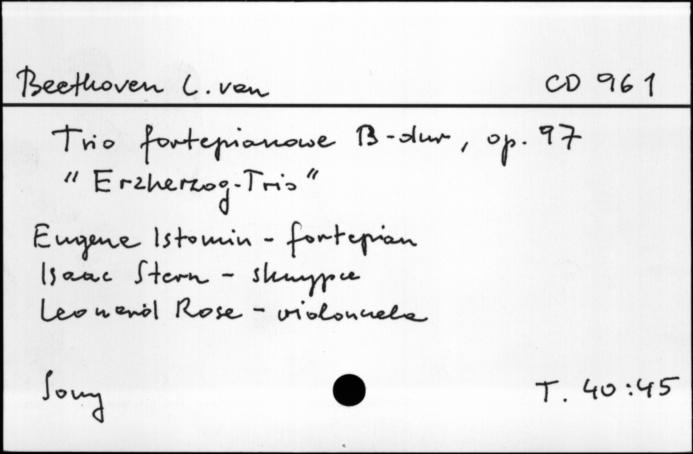 Beethoven L. van CD 961
Trio fortepianowe B-dur, op. 97
"Erzherzog-Trio"
Eugene Istomin - fortepian
Isaac Stern - skrzypce
Leonard Rose - wiolonczela
Sony T. 40:45